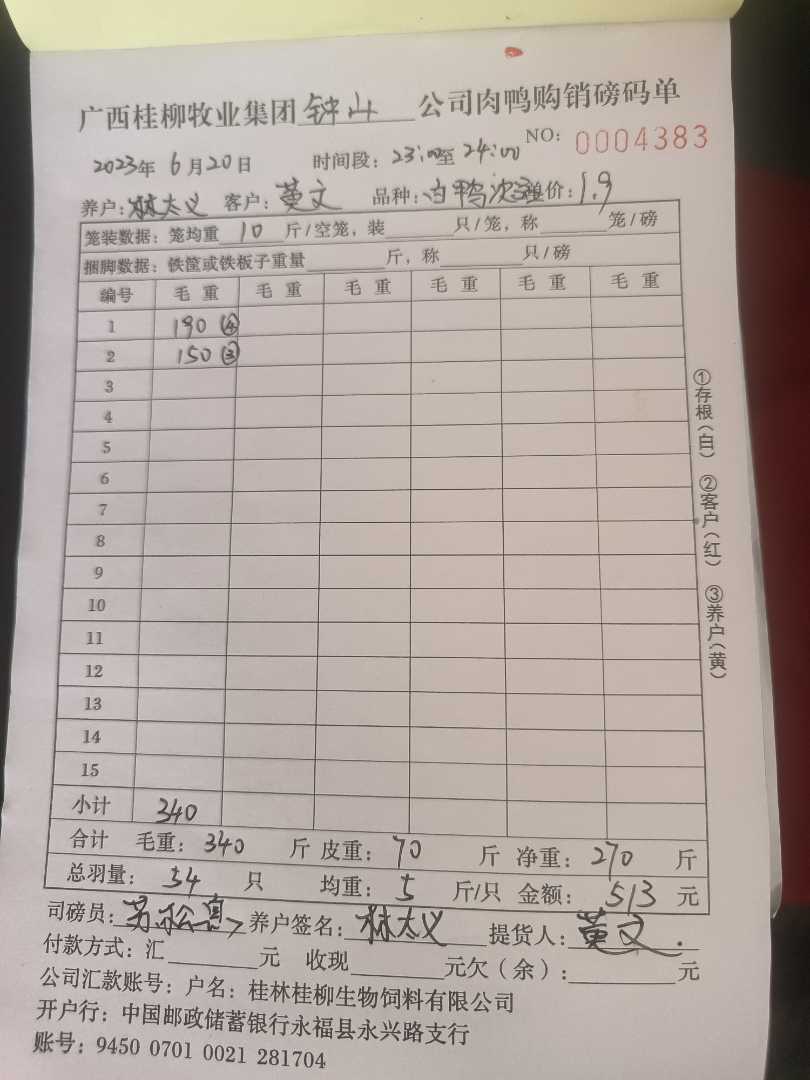 广西桂柳牧业集团钟山公司肉鸭购销磅码单
NO: 0004383
2023年6月20日 时间段: 23:00至24:00
养户: 林太义 客户: 黄文 品种: 白鸭 单价: 1.9
笼装数据: 笼均重10斤/空笼, 装____只/笼, 称____笼/磅
捆脚数据: 铁筐或铁板子重量____斤, 称____只/磅
编号 毛重 毛重 毛重 毛重 毛重 毛重
1 190 ④
2 150 ③
3
4
5
6
7
8
9
10
11
12
13
14
15
小计 340
合计 毛重: 340 斤 皮重: 70 斤 净重: 270 斤
总羽量: 54 只 均重: 5 斤/只 金额: 513 元
司磅员: 养户签名: 林太义 提货人: 黄文
付款方式: 汇____元 收现____元欠(余): ____元
公司汇款账号: 户名: 桂林桂柳生物饲料有限公司
开户行: 中国邮政储蓄银行永福县永兴路支行
账号: 9450 0701 0021 281704
①存根(白) ②客户(红) ③养户(黄)